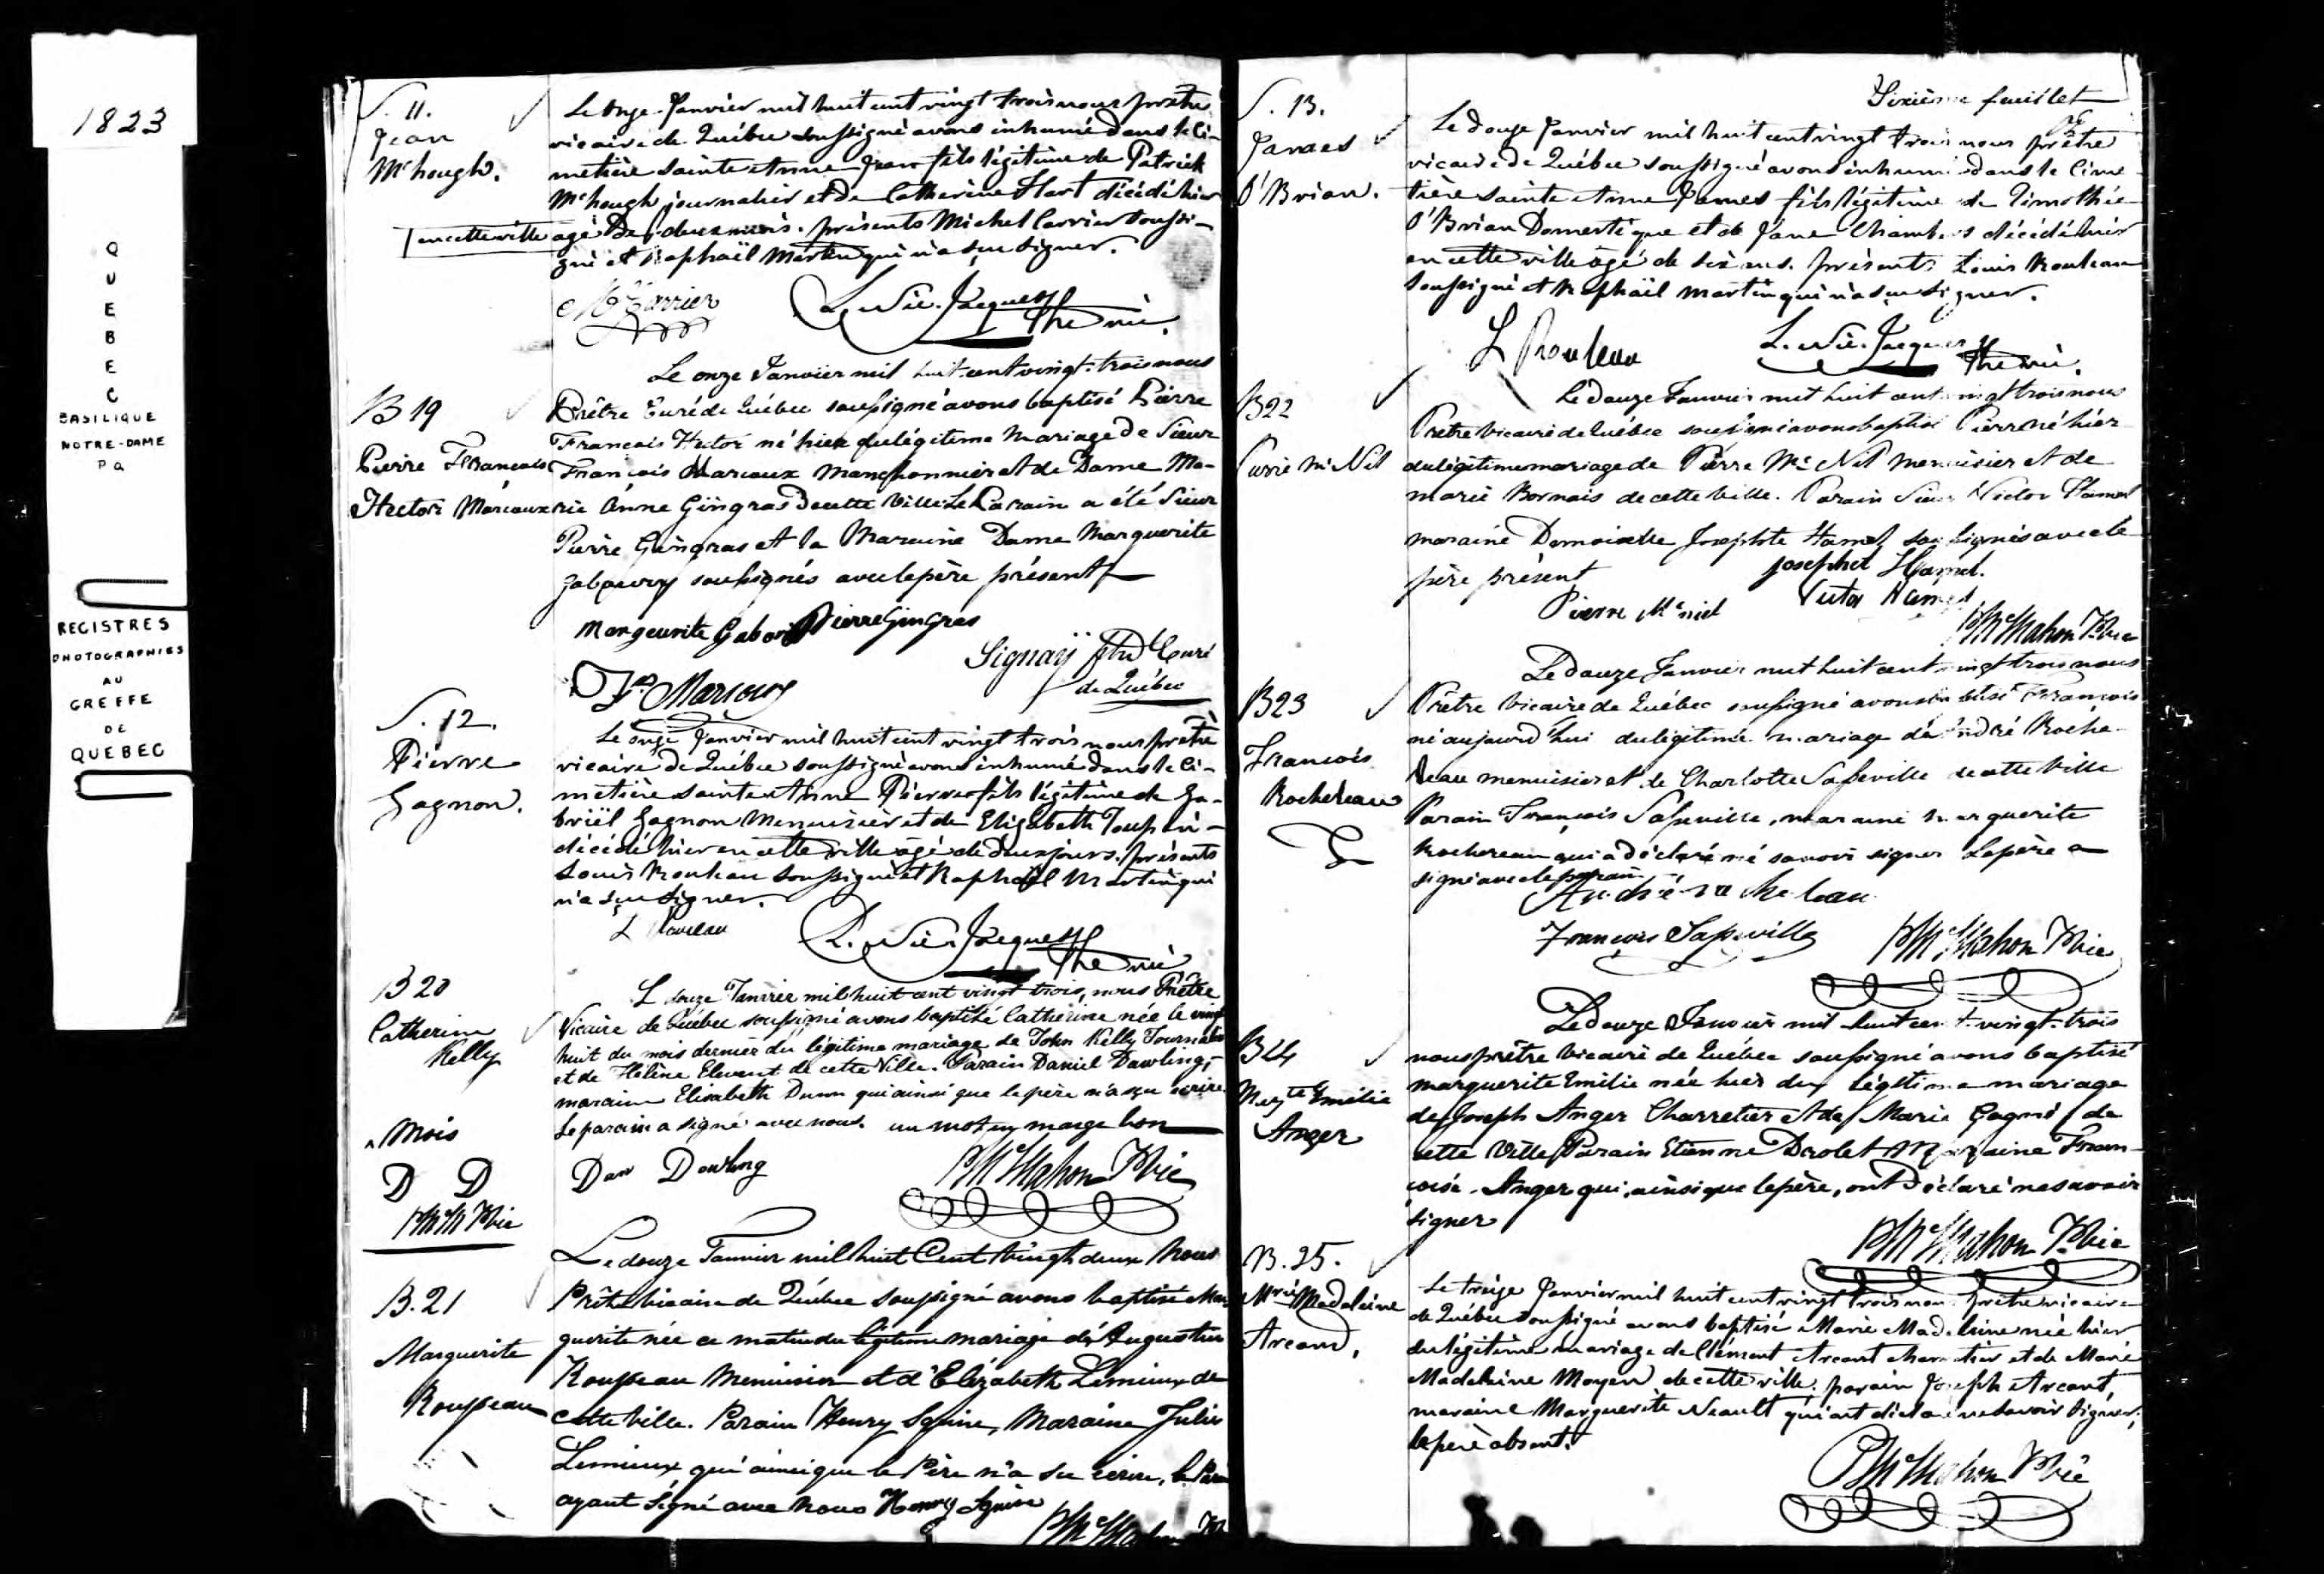 1823
QUEBEC
BASILIQUE
NOTRE-DAME
Pa
REGISTRES
PHOTOGRAPHIES
AU
GREFFE
DE
QUEBEC
S. 11.
Jean
McHough.
Le onze Janvier mil huit cent vingt trois nous prêtre
vicaire de Québec soussigné avons inhumé dans le ci-
metière sainte Anne Jean fils légitime de Patrick
McHough journalier et de Catherine Hart décédé hier
en cette ville
agé de deux mois. présents Michel Carrier soussi-
gné et Raphaël Martin qui n'a sçu signer.
M Carrier
L. Nic. Jacques
Ptre vic.
B 19
Pierre François
Hector Marcoux
Le onze Janvier mil huit-cent vingt-trois nous
Prêtre Curé de Québec soussigné avons baptisé Pierre
François Hector né hier du légitime mariage de Sieur
François Marcoux Manchonnier et de Dame Ma-
rie Anne Gingras de cette Ville Le Parain a été Sieur
Pierre Gingras et la Maraine Dame Marguerite
Gaboury soussignés avec le père présent
Marguerite Gabori Pierre Gingras
Signaÿ Ptre Curé
de Québec
Fs Marcoux
S. 12.
Pierre
Gagnon.
Le onze Janvier mil huit cent vingt trois nous prêtre
vicaire de Québec soussigné avons inhumé dans le ci-
metière sainte Anne Pierre fils légitime de Ga-
briël Gagnon Menuisier et de Elizabeth Toupin
décédé hier en cette ville âgé de deux jours. présents
Louis Rouleau soussigné et Raphaël Martin qui
n'a sçu signer.
L Rouleau
L. Nic. Jacques
Ptre vic
B 20
Catherine
Kelly
L douze Janvier mil huit cent vingt trois, nous Prêtre
Vicaire de Québec soussigné avons baptisé Catherine née le vingt
huit du mois dernier du légitime mariage de John Kelly Journalier
et de Hélène de cette Ville. Parain Daniel Dawling,
maraine Elisabeth Dunn qui ainsi que le père n'a sçu écrire
Le parain a signé avec nous. un mot en marge bon
Mois
D D
PMcM Pvic
Dan Dowling
PMcMahon Pvic
B. 21
Marguerite
Rousseau
Le douze Janvier mil huit Cent Vingt deux Nous
Prêtre vicaire de Québec soussigné avons baptisé Mar
guerite née ce matin du légitime mariage de Augustin
Rousseau Menuisier et d'Elizabeth Lemieux de
cette Ville. Parain Henry Squire, Maraine Julie
Lemieux qui ainsi que le Père n'a su écrire, le Parain
ayant signé avec nous Henry Squire
PMcMahon
Sixième feuillet
S. 13.
James
O'Brian.
Le douze Janvier mil huit cent vingt trois nous prêtre
vicaire de Québec soussigné avons inhumé dans le cime
tière sainte Anne James fils légitime de Timothée
O'Brian Domestique et de Jane Chambers décédé hier
en cette ville âgé de six ans. présents Louis Rouleau
soussigné et Raphaël Martin qui n'a sçu signer.
L Rouleau
L. Nic. Jacques
Ptre vic.
B22
Pierre McNil
Le douze Janvier mil huit cent vingt trois nous
Prêtre Vicaire de Québec soussigné avons baptisé Pierre né hier
du légitime mariage de Pierre McNil menuisier et de
marie Bornais de cette Ville. Parain Sieur Victor Hamel
maraine Demoiselle Josephte Hamel soussignés avec le
père présent
josephet Hamel.
Pierre McNiel
Victor Hamel
PMcMahon Pvic
B23
François
Rochereau
Le douze Janvier mil huit cent vingt trois nous
Prêtre Vicaire de Québec soussigné avons baptisé François
né aujourd'hui du légitime mariage d'André Roche-
leau menuisier et de Charlotte Lasseville de cette Ville
Parain François Lasseville, maraine Marguerite
Rochereau qui a déclaré ne savoir signer le père a
signé avec le parain
André rocheleau
François Lasseville
PMcMahon Pvic
B24
Mgte Emilie
Anger
Le douze Janvier mil huit cent-vingt-trois
nous prêtre Vicaire de Québec soussigné avons baptisé
marguerite Emilie née hier du légitime mariage
de Joseph Anger Charretier et de Marie Gagné de
cette Ville Parain Etienne Drolet Maraine Fran-
çoise Anger qui, ainsi que le père, ont déclaré ne savoir
signer
PMcMahon Pvic
B. 25.
Mrie Madeleine
Arcand,
Le treize Janvier mil huit cent vingt trois nous prêtre vicaire
de Québec soussigné avons baptisé Marie Madeleine née hier
du légitime mariage de Clément Arcant charretier et de Marie
Madeleine Moyen de cette ville, parain Joseph Arcant,
maraine Marguerite Neault qui ont déclaré ne savoir signer,
le père absent.
PMcMahon Pvic